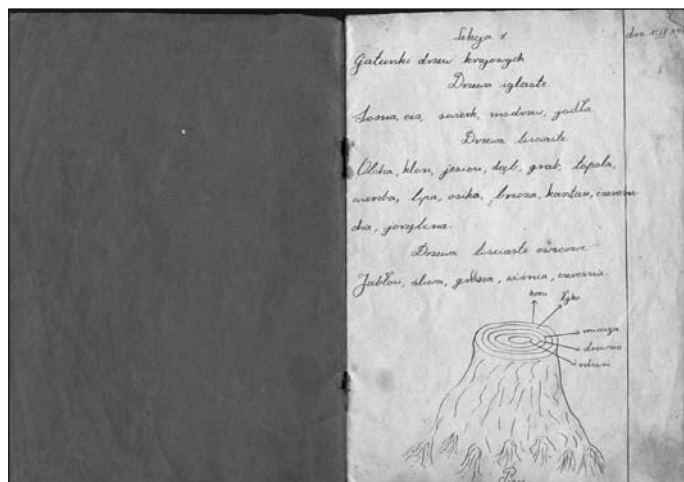 Lekcja 1
Gatunki drzew krajowych
Drzewa iglaste.
Sosna, cis, świerk, modrzew, jodła
Drzewa liściaste
Olcha, klon, jesion, dąb, grab, topola,
wierzba, lipa, osika, brzoza, kasztan, czerem
cha, jarzębina.
Drzewa liściaste owocowe
Jabłoń, śliwa, grusza, wiśnia, czereśnia
kora
łyko
miazga
drewno
rdzeń
Pień